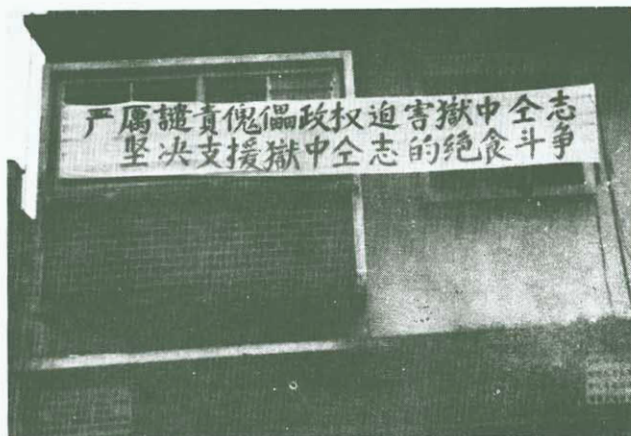 严厉譴責傀儡政权迫害獄中仝志
坚决支援獄中仝志的绝食斗争